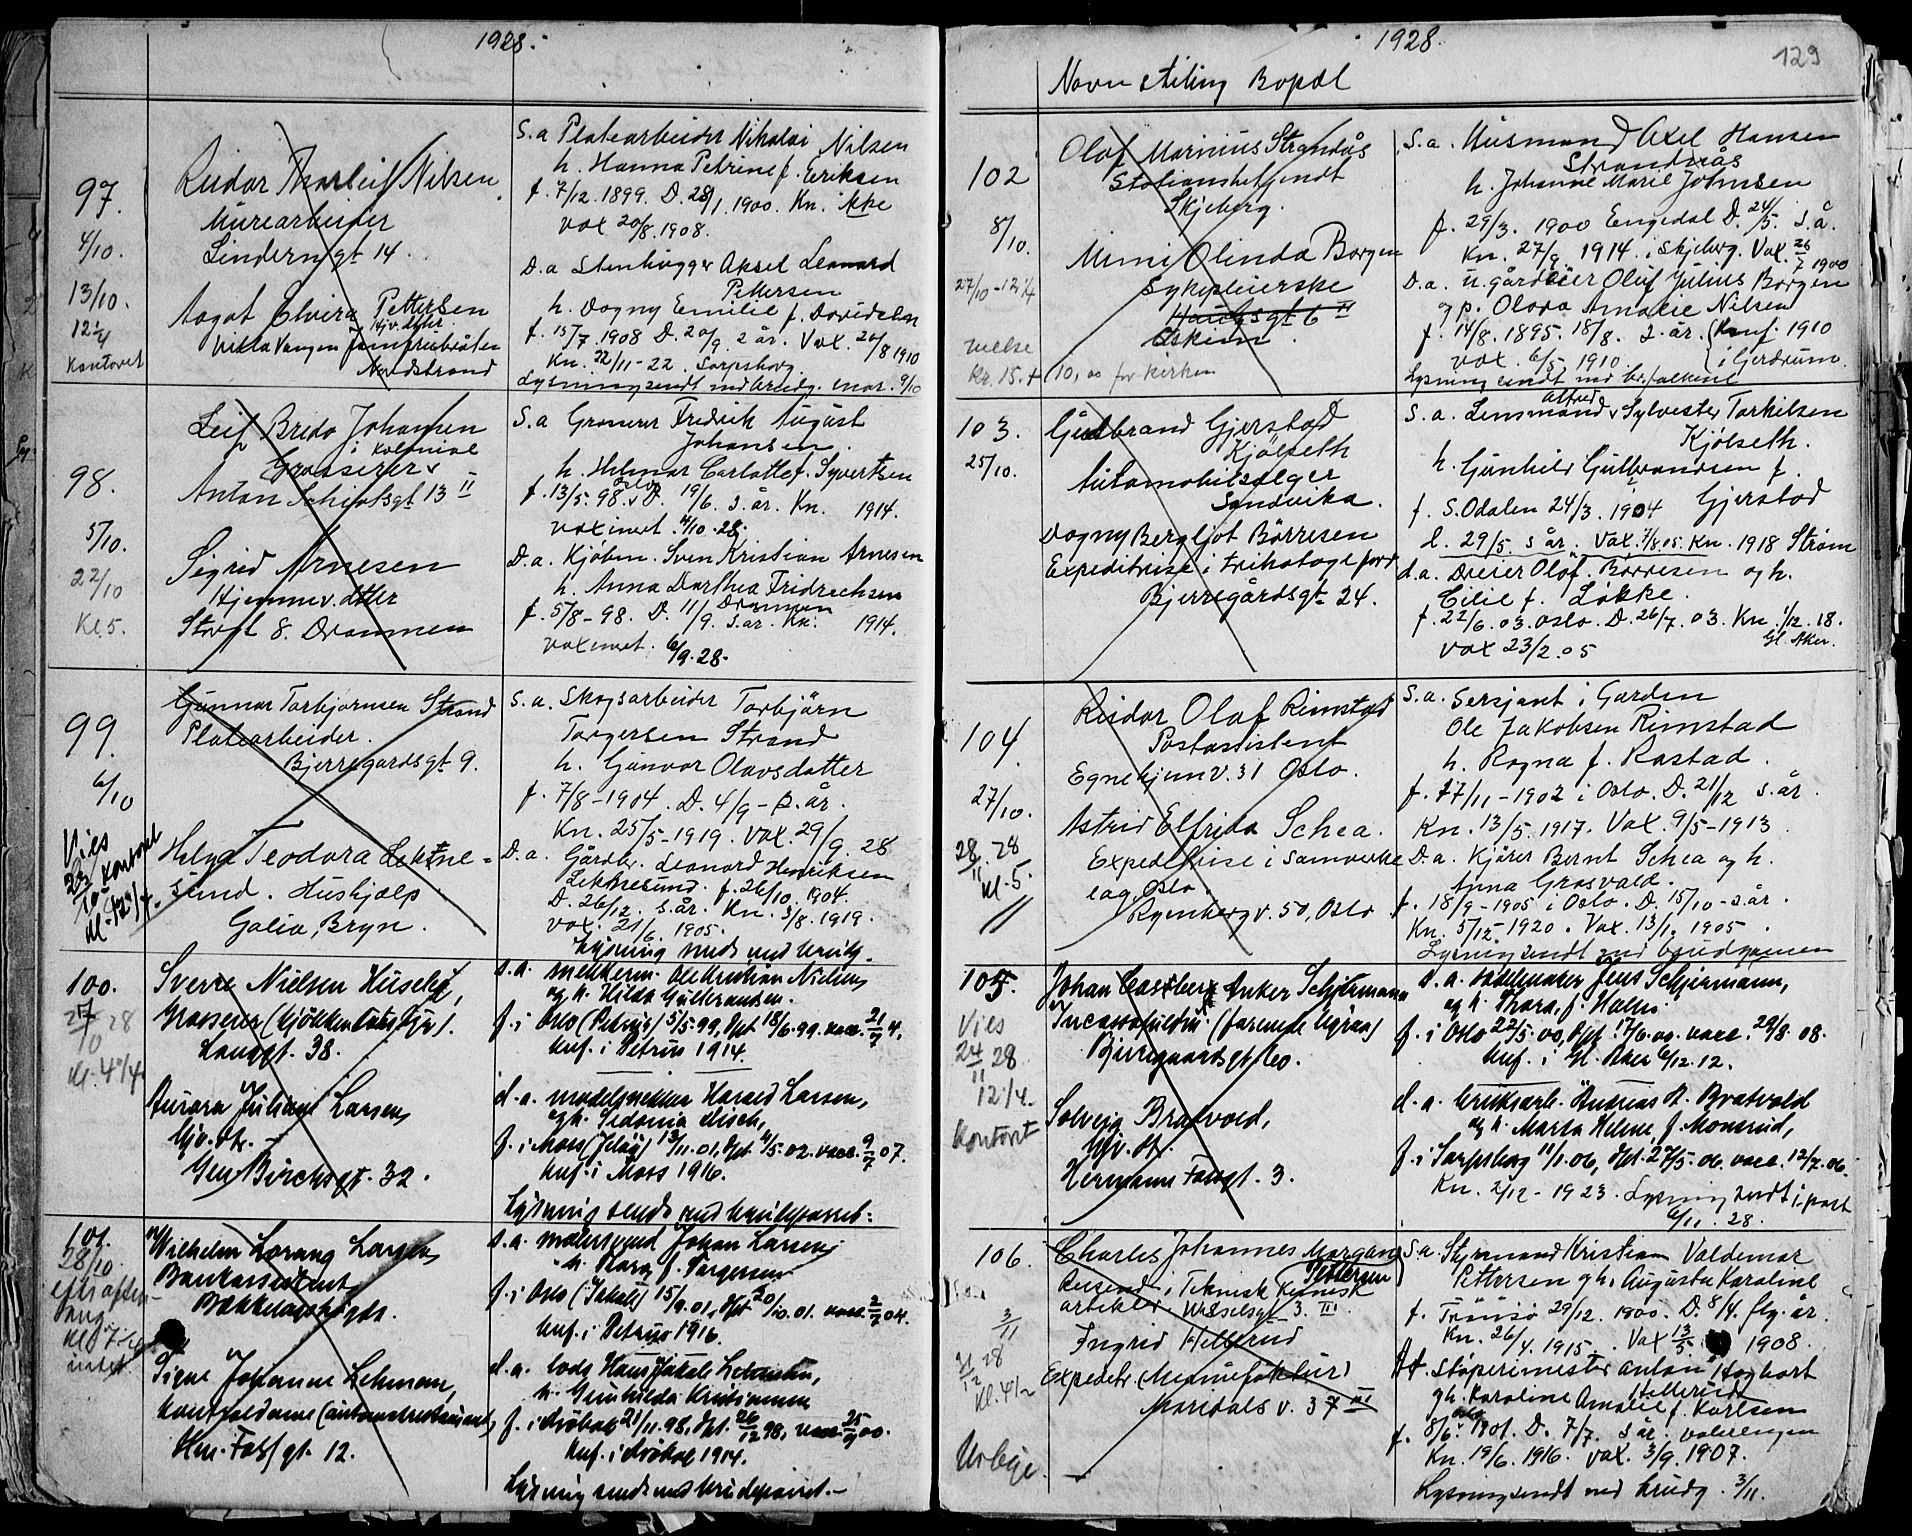 1928.
97.
4/10.
13/10.
12 1/4
Kontoret
Reidar Thorleif Nilsen
Murearbeider
Linderngt 14.
Aagot Elvira Pettersen
Hjv. dtter
Nordstrand
S. a Platearbeider Nikolai Nilsen
h. Hanna Petrine f. Eriksen
f. 7/12. 1899. D. 28/1. 1900. Kn. ikke
Vax 20/8. 1908.
D. a Stenhugger Aksel Leonard
Pettersen
h. Dagny Emilie f. Davidsen
f. 15/7. 1908 D. 20/9. s. år. Vax. 20/8 1910
Kn. 22/11-22. Sarpsborg.
Lysning sendt med brudg. mor. 9/10
98.
5/10.
22/10
Kl 5.
Leif Bredo Johansen
i Kolonial
Grosserer
Anton Schiøtsgt 13 II
Sigrid Arnesen
Hjemmev. dtter
Storgt 8. Drammen
S. a Grosserer Fredrik August
Johansen.
h. Helmar Carlotte f. Syvertsen
f. 13/5. 98. Oslo D. 19/6. s. år. Kn. 1914.
vax invet. 4/10. 28.
D. a. Kjøbm. Sven Kristian Arnesen
h. Anna Dorthea Fridrechsen
f. 5/8-98. D. 11/9. s. år. Kn. 1914.
Drammen
vax invet. 6/9. 28.
99.
6/10
Vies
23/10
på kontoret
Kl. 12 1/4.
Gunnar Torbjørnsen Strand
Platearbeider.
Bjerregaardsgt 9.
Helga Teodora Leknesund. Hushjælp
Galia, Bryn.
S. a. Skogsarbeider Torbjörn
Torgersen Strand
h. Gunvor Olavsdatter
f. 7/8-1904. D. 4/9-s. år.
Kn. 25/5-1919. Vax. 29/9. 28
D. a. Gårdbr. Leonard Henriksen
Leknesund. f. 26/10. 1904.
D. 26/12. s. år. Kn. 3/8. 1919.
vax. 21/6. 1905.
Lysning sends med brudg.
100.
27/10 28
kl. 4 3/4
Sverre Nielsen Huseby,
Grosserer (kjøkkenutstyr).
Langgt. 38.
Aurora Juliane Larsen,
hjv. dtr.
Gen. Birchsgt. 32.
s. a. mekkerm. Ole Kristian Nielsen
og h. Hilda Gulbrandsen.
f. i Oslo (Petrus) 5/5. 99, dpt 18/6. 99. vacc. 21/7 4.
knf. i Petrus 1914.
d. a. modelsnekker Harald Larsen,
og h. Sidonia Misch,
f. i Moss (Jeløy) 13/11. 01, dpt. 4/5. 02. vacc. 9/7 07.
knf. i Moss 1916.
Lysning sends med brudeparret.
101.
28/10
Kl 7
Wilhelm Lorang Larsen,
Bankassistent,
Bækkelagshøgda.
Signe Johanne Lehmann,
kontordame
Hm. Fossgt. 12.
s. a. malersvend Johan Larsen,
h. Thora f. Torgersen
f. i Oslo (Jakob) 15/9. 01, dpt 20/10. 01. vacc. 2/7 04.
knf. i Petrus 1916.
d. a. lods Hans Jakob Lehmann,
h. Gunhilda Kristiansen
f. i Drøbak 21/11. 98, dpt. 26/12 98, vacc. 25/9 00.
knf. i Drøbak 1914.
Lysning sends med brudeparret.
1928.
129
Navn stiling Bopæl
102
8/10.
27/10-12 1/4
vielse
Kr. 15. + 10,00 for kirken
Olaf Marinius Strandås
Stationsbetjendt
Skjeberg.
Mimi Olinda Borgen
Sykepleierske
Haugsgt 6 II
Askim.
S. a. Husmand Axel Hansen
Strandås
h. Johanne Marie Johnsen
f. 29/3. 1900 Engedal D. 24/5. s. å.
Kn. 27/9. 1914. i Skjeberg. Vax. 26/7 1900
D. a. u. gårdeier Oluf Julius Borgen
og p. Olava Amalie Nilsen
f. 14/8. 1895. 18/8. s. år. (Konf. 1910
vax. 6/5. 1910. i Gjerdrum.
Lysning sendt med br.
103.
25/10.
Gudbrand Gjerstad
Kjölseth
Automobilselger
Sandvika.
Dagny Bergljot Börresen
Expeditrise i trikotageforr
Bjerregårdsgt 24.
S. a. Lensmand Alfred Sylvester Torkilsen
Kjölseth.
h. Gunhild Gulbrandsen f.
Gjerstad
f. S. Odalen 24/3. 1904
d. 29/5 s år. Vax. 7/8. 05. Kn. 1918 Strøm
d. a. Dreier Olof Börresen og h.
Cilie f. Løkke.
f. 22/6. 03. Oslo. D. 26/7. 03. Kn. 1/12. 18.
Gl. Aker.
Vax 23/2. 05
104.
27/10.
28/11. 28
Kl. 5.
Reidar Olaf Rimstad
Postassistent
Egnehjem v. 31 Oslo.
Astrid Elfrida Schea.
Expeditrise i Samvirke
lag Oslo.
Ryenberg v. 50, Oslo
S. a. Sersjant i Garden
Ole Jakobsen Rimstad
h. Ragna f. Rastad.
f. 17/11-1902 i Oslo. D. 21/12 s. år.
Kn. 13/5. 1917. Vax. 9/5-1913.
D. a. Kjører Bernt Schea og h.
Anna Grasvald.
f. 18/9-1905 i Oslo. D. 15/10-s. år.
Kn. 5/12-1920. Vax. 13/1. 1905.
Lysning sendt med brudgommen
105.
Vies
24/11 28
12 1/4.
Kontoret
Johan Castberg Anker Schjermann
Incassofuldm. (farende)
Bjerregaardsgt 60.
Solveig Bratvold,
hjv. dt.
Hermann Fossgt. 3.
s. a. sadelmaker Jens Schjermann,
og h. Thora, f. Holm.
f. i Oslo 22/5. 00, dpt. 17/6. 00. vacc. 29/8. 08.
knf. i Gl. Aker 6/12. 12.
d. a. bruksarb. Andreas A. Bratvold
og h. Marta Helene f. Monsrud,
f. i Sarpsborg 11/1. 06, dpt. 27/5. 06. vacc. 12/7. 06.
Kn. 2/12-1923. Lysning sendt i post
6/11. 28.
106.
3/11
21/12 28
kl. 4 1/2
Charles Johannes Morgan
Pettersen
Reisend. i Teknisk Kjemisk
artikler. 3. III.
Ingrid Hellerud
Expeditr. (Manufaktur)
Maridals v. 37 III
S. a. Styrmand Kristian Valdemar
Pettersen og h. Augusta Karoline
f. Tromsö 29/12. 1900. D. 8/4. flg. år.
Kn. 26/4. 1915. Vax 13/5 1908.
Dt. støperimester Anton Hogbart
Hellerud
gh. Karoline Amalie f. Karlsen
f. 8/6. Oslo 1901. D. 7/7. s år. Valerengen
Kn. 19/6. 1916. Vax. 3/9. 1907.
Lysning sendt med brudg. 3/11.